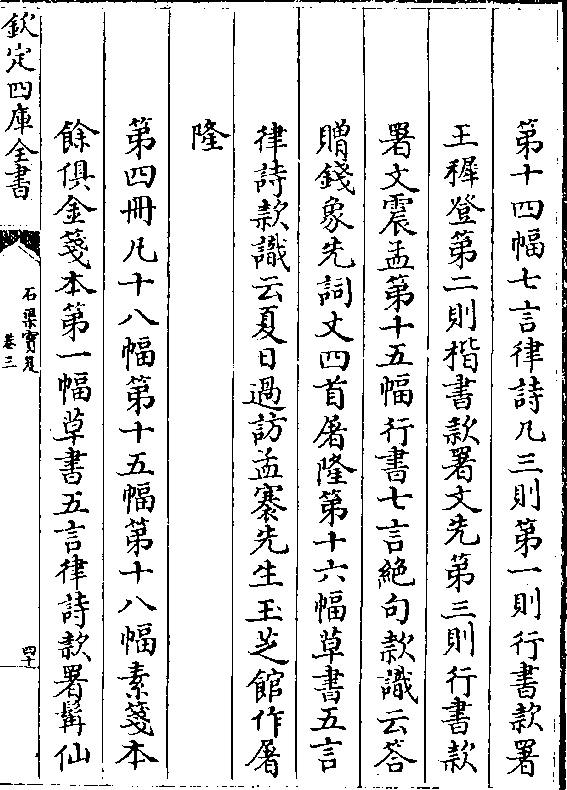 第十四幅七言律詩凡三則第一則行書款署
王穉登第二則楷書款署文先第三則行書款
署文震孟第十五幅行書七言絶句款識云荅
贈錢象先詞丈四首屠隆第十六幅草書五言
律詩款識云夏日過訪孟寨先生玉芝館作屠
隆
第四冊凡十八幅第十五幅第十八幅素箋本
餘俱金箋本第一幅草書五言律詩款署髯仙
欽定四庫全書
石渠寶笈
卷三
四十